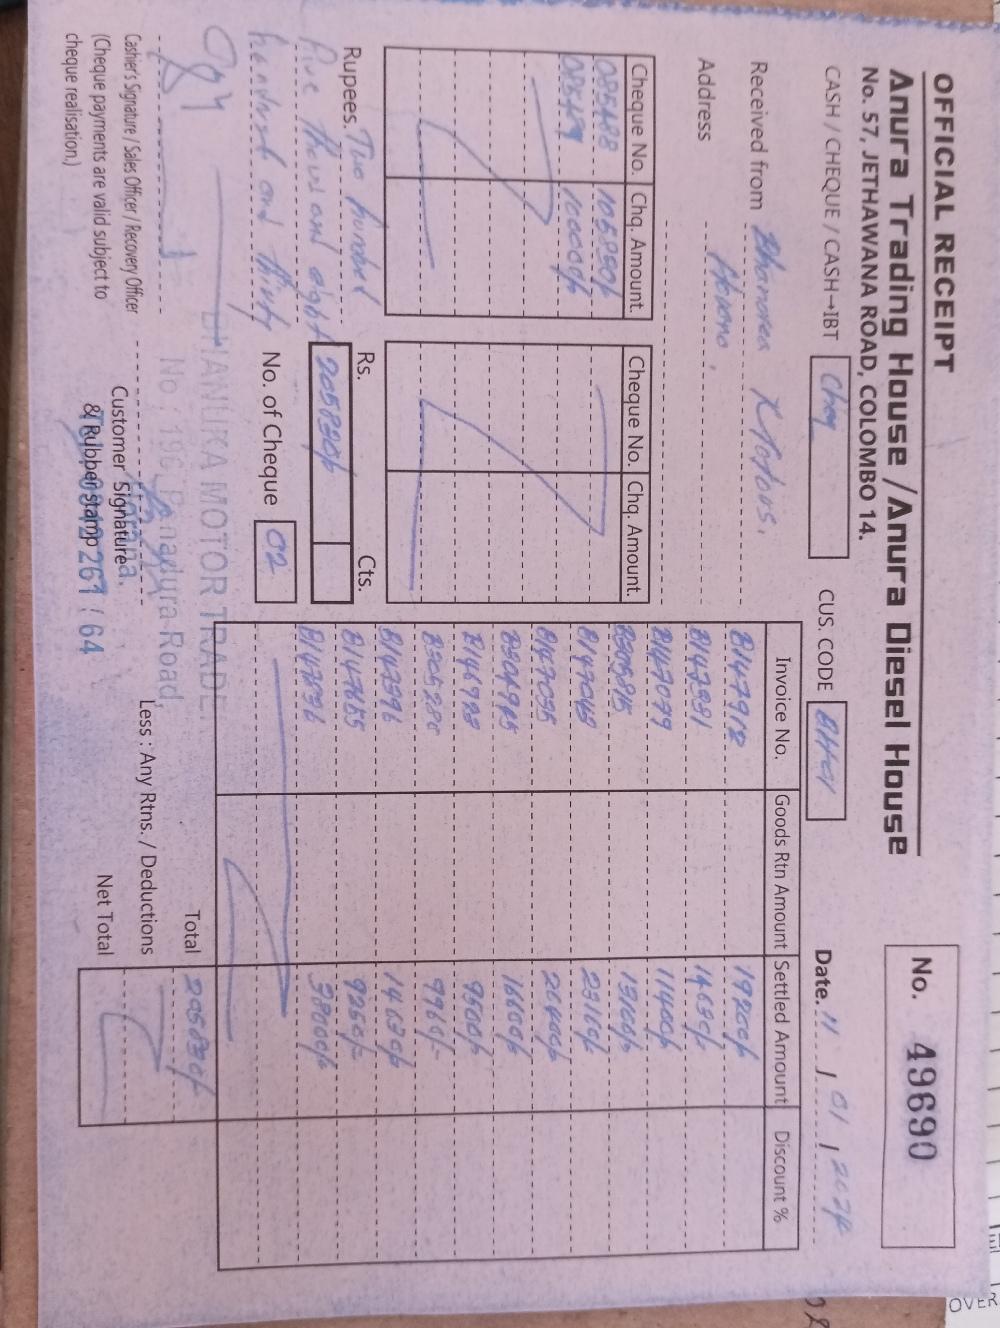 OFFICIAL RECEIPT
Anura Trading House / Anura Diesel House
No. 57, JETHAWANA ROAD, COLOMBO 14.
No. 49690
CASH / CHEQUE / CASH→IBT Chq
CUS. CODE
Date. 11 / 01 / 2024
Received from Motors.
Address Horana.
Cheque No. Chq. Amount. Cheque No. Chq. Amount.
085488 105830/-
085489 100000/-
Rupees. Two hundred
five thousand eight
hundred and thirty
Rs. Cts.
205830/-
No. of Cheque 02
Invoice No. Goods Rtn Amount Settled Amount Discount %
B147918 19200/-
B147331 14630/-
B147079 11400/-
B305815 13100/-
B147048 23160/-
B147035 26400/-
B304945 16600/-
B146728 9500/-
B305286 9960/-
B147396 14630/-
B147655 9250/-
38000/-
Total 205830/-
Less : Any Rtns. / Deductions
Net Total
BHANUKA MOTOR TRADE.
No : 196, Panadura Road,
Horana.
Cashier's Signature / Sales Officer / Recovery Officer
(Cheque payments are valid subject to
cheque realisation.)
Customer Signature
& Rubber stamp
OVER